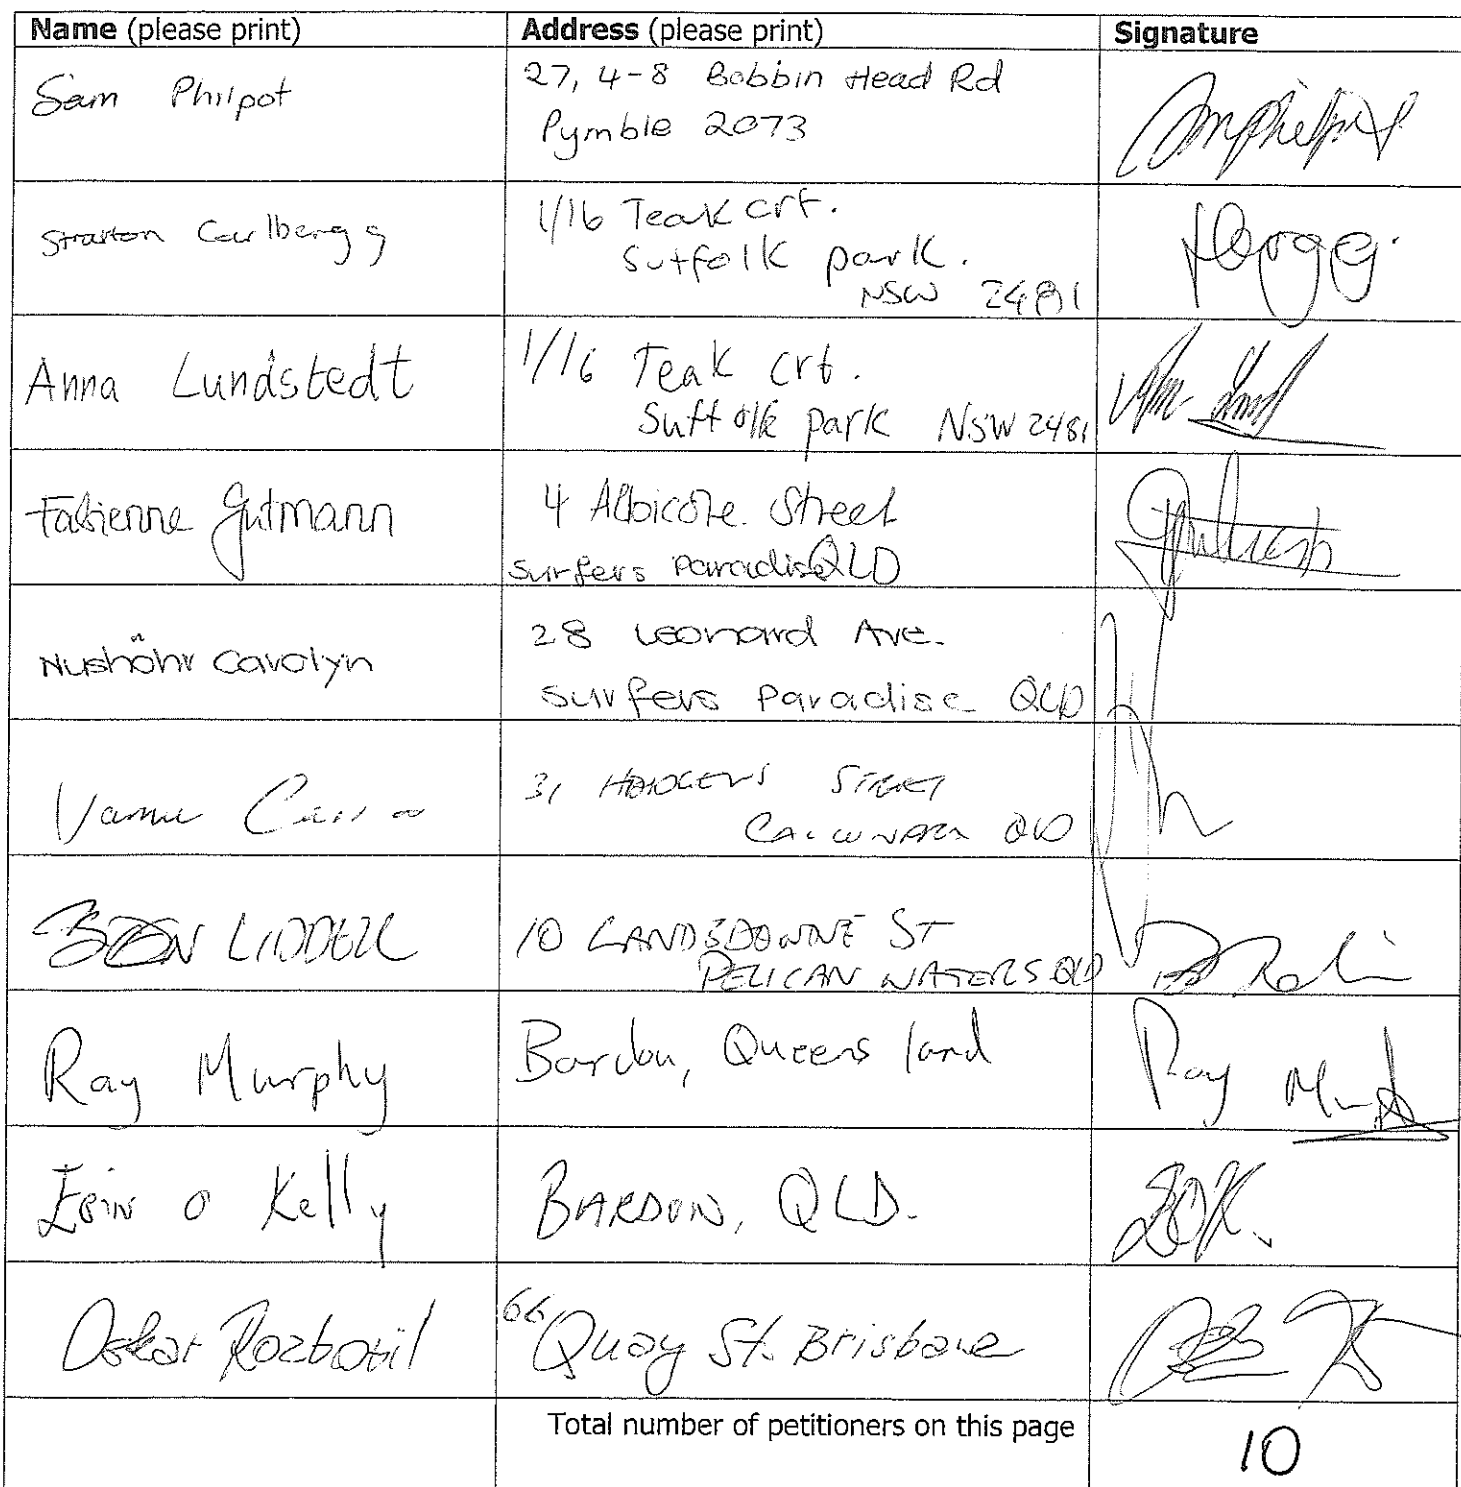 Name (please print) Address (please print) Signature
Sam Philpot
27, 4-8 Bobbin Head Rd
Pymble 2073
Straton Carlbergg
1/16 Teak crt.
Suffolk park.
NSW 2481
Anna Lundstedt
1/16 Teak crt.
Suffolk park NSW 2481
Fabienne Gutmann
4 Albicore Street
Surfers Paradise QLD
Carolyn
28 Leonard Ave.
Surfers Paradise QLD
31 STREET
QLD
BEN LIDDELL
10 LANDSDOWNE ST
PELICAN WATERS QLD
Ray Murphy
Bardon, Queensland
Ray
Eoin O Kelly
BARDON, QLD.
EOK.
Oskar Rozbotil
66 Quay St. Brisbane
Total number of petitioners on this page
10